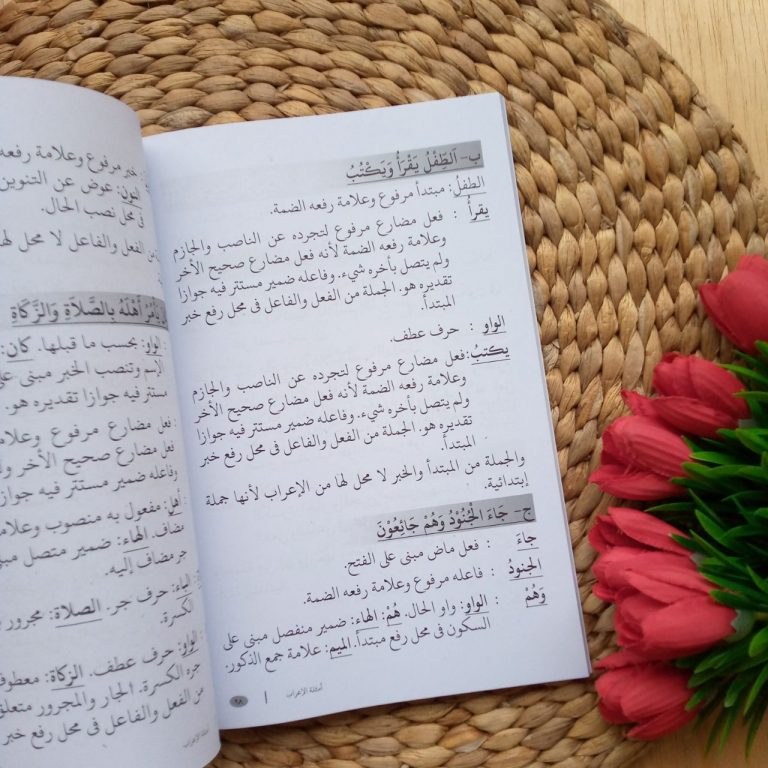 ب- اَلطِّفْلُ يَقْرَأُ وَيَكْتُبُ
الطفلُ: مبتدأ مرفوع وعلامة رفعه الضمة.
يقرأُ : فعل مضارع مرفوع لتجرده عن الناصب والجازم
وعلامة رفعه الضمة لأنه فعل مضارع صحيح الأخر
ولم يتصل بأخره شيء. وفاعله ضمير مستتر فيه جوازا
تقديره هو. الجملة من الفعل والفاعل فى محل رفع خبر
المبتدأ.
الواو : حرف عطف.
يكتبُ: فعل مضارع مرفوع لتجرده عن الناصب والجازم
وعلامة رفعه الضمة لأنه فعل مضارع صحيح الأخر
ولم يتصل بأخره شيء. وفاعله ضمير مستتر فيه جوازا
تقديره هو. الجملة من الفعل والفاعل فى محل رفع خبر
المبتدأ.
والجملة من المبتدأ والخبر لا محل لها من الإعراب لأنها جملة
إبتدائية.
ج- جَاءَ الْجُنُوْدُ وَهُمْ جَائِعُوْنَ
جاءَ : فعل ماض مبنى على الفتح.
الجنودُ : فاعله مرفوع وعلامة رفعه الضمة.
وَهُمْ : الواو: واو الحال. هُمْ: الهاء: ضمير منفصل مبنى على
السكون فى محل رفع مبتدأ. الميم: علامة جمع الذكور.
أمثلة الإعراب | ٢٨
: خبر مرفوع وعلامة رفعه
النون: عوض عن التنوين
فى محل نصب الحال.
من الفعل والفاعل لا محل لها
يَأْمُرُ أَهْلَهُ بِالصَّلَاةِ وَالزَّكَاةِ
: الواو: بحسب ما قبلها. كان:
الإسم وتنصب الخبر مبنى على
مستتر فيه جوازا تقديره هو.
: فعل مضارع مرفوع وعلامة
مضارع صحيح الأخر ولم
وفاعله ضمير مستتر فيه جوازا
: أهل: مفعول به منصوب وعلامة
مضاف. الهاء: ضمير متصل مبنى
جر مضاف إليه.
: الباء: حرف جر. الصلاة: مجرور
الكسرة.
: الواو: حرف عطف. الزكاة: معطوف
جره الكسرة. الجار والمجرور متعلق
من الفعل والفاعل فى محل رفع خبر
أمثلة الإعراب